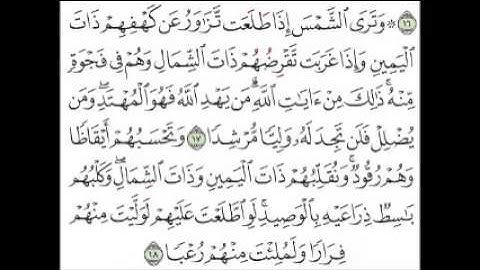 ۝١٦ ۞ وَتَرَى ٱلشَّمْسَ إِذَا طَلَعَت تَّزَٰوَرُ عَن كَهْفِهِمْ ذَاتَ
ٱلْيَمِينِ وَإِذَا غَرَبَت تَّقْرِضُهُمْ ذَاتَ ٱلشِّمَالِ وَهُمْ فِى فَجْوَةٍ
مِّنْهُ ۚ ذَٰلِكَ مِنْ ءَايَٰتِ ٱللَّهِ ۗ مَن يَهْدِ ٱللَّهُ فَهُوَ ٱلْمُهْتَدِ ۖ وَمَن
يُضْلِلْ فَلَن تَجِدَ لَهُۥ وَلِيًّا مُّرْشِدًا ۝١٧ وَتَحْسَبُهُمْ أَيْقَاظًا
وَهُمْ رُقُودٌ ۚ وَنُقَلِّبُهُمْ ذَاتَ ٱلْيَمِينِ وَذَاتَ ٱلشِّمَالِ ۖ وَكَلْبُهُم
بَٰسِطٌ ذِرَاعَيْهِ بِٱلْوَصِيدِ ۚ لَوِ ٱطَّلَعْتَ عَلَيْهِمْ لَوَلَّيْتَ مِنْهُمْ
فِرَارًا وَلَمُلِئْتَ مِنْهُمْ رُعْبًا ۝١٨